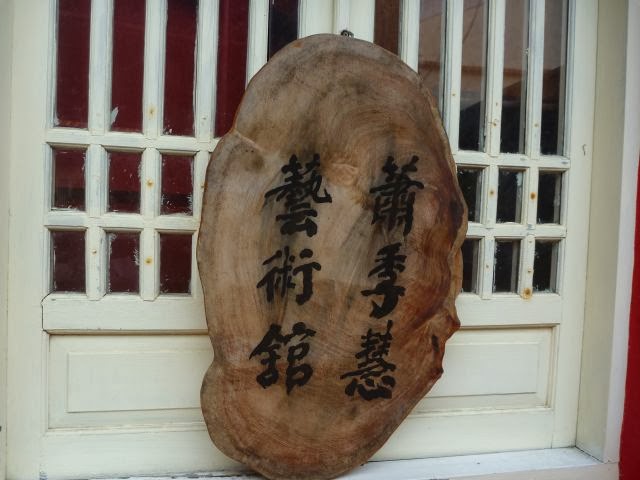 蕭季慧
藝術館